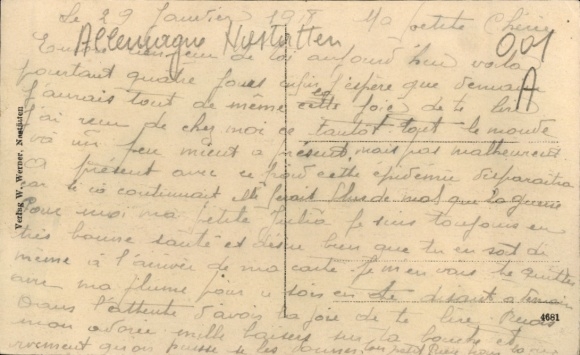 Le 29 Janvier 1919 Ma petite Chérie
Allemagne Nastätten
001
A
Encore rien reçu de toi aujourd'hui voilà
pourtant quatre jours j'espère que demain
j'aurais tout de même cette joie de te lire
J'ai reçu de chez moi ce tantôt tout le monde
va un peu mieux à présent, mais pas malheureux
à présent avec ce froid cette épidémie disparaîtra
car si ça continuait elle ferait plus de mal que la guerre
Pour moi ma petite je suis toujours en
très bonne santé et désire bien que tu en soit de
même à l'arrivée de ma carte. Je m'en vais te quitter
avec ma plume pour ce soir en te disant à demain
Dans l'attente d'avoir la joie de te lire. Reçois
mon adorée mille baisers sur la bouche et
vivement qu'on puisse se les donner ton petit
Verlag W. Werner, Nastätten
4681